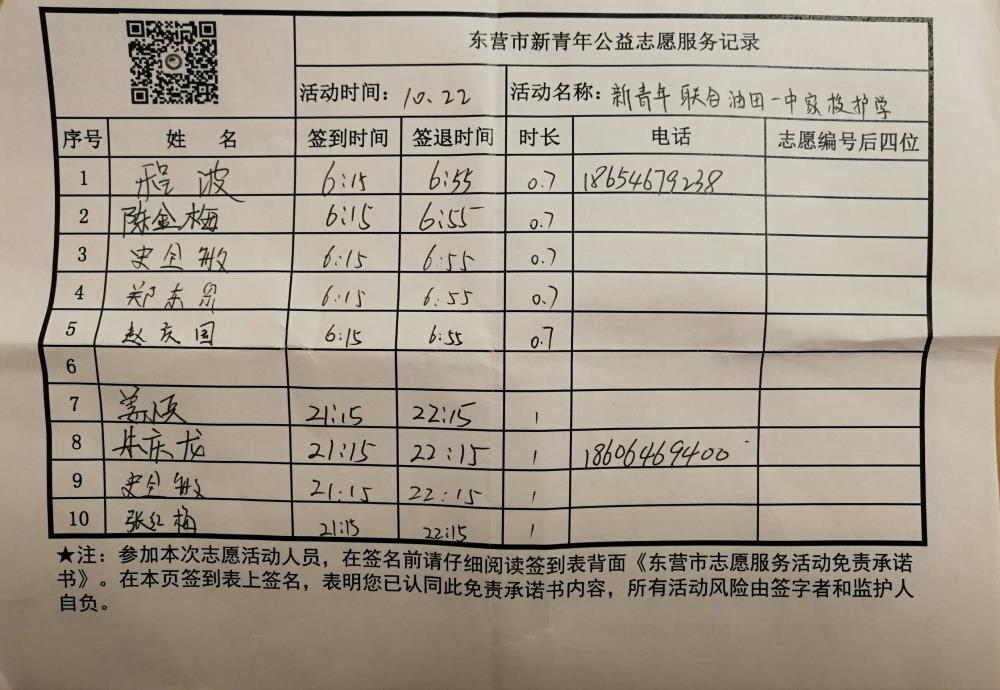 东营市新青年公益志愿服务记录
活动时间: 10.22 活动名称: 新青年联合油田一中家校护学
序号 姓 名 签到时间 签退时间 时长 电话 志愿编号后四位
1 程波 6:15 6:55 0.7 18654679238
2 陈金梅 6:15 6:55 0.7
3 史全敏 6:15 6:55 0.7
4 郑东 6:15 6:55 0.7
5 赵庆国 6:15 6:55 0.7
6
7 姜顺 21:15 22:15 1
8 庆龙 21:15 22:15 1 18606469400
9 史全敏 21:15 22:15 1
10 张红梅 21:15 22:15 1
★注:参加本次志愿活动人员,在签名前请仔细阅读签到表背面《东营市志愿服务活动免责承诺
书》。在本页签到表上签名,表明您已认同此免责承诺书内容,所有活动风险由签字者和监护人
自负。